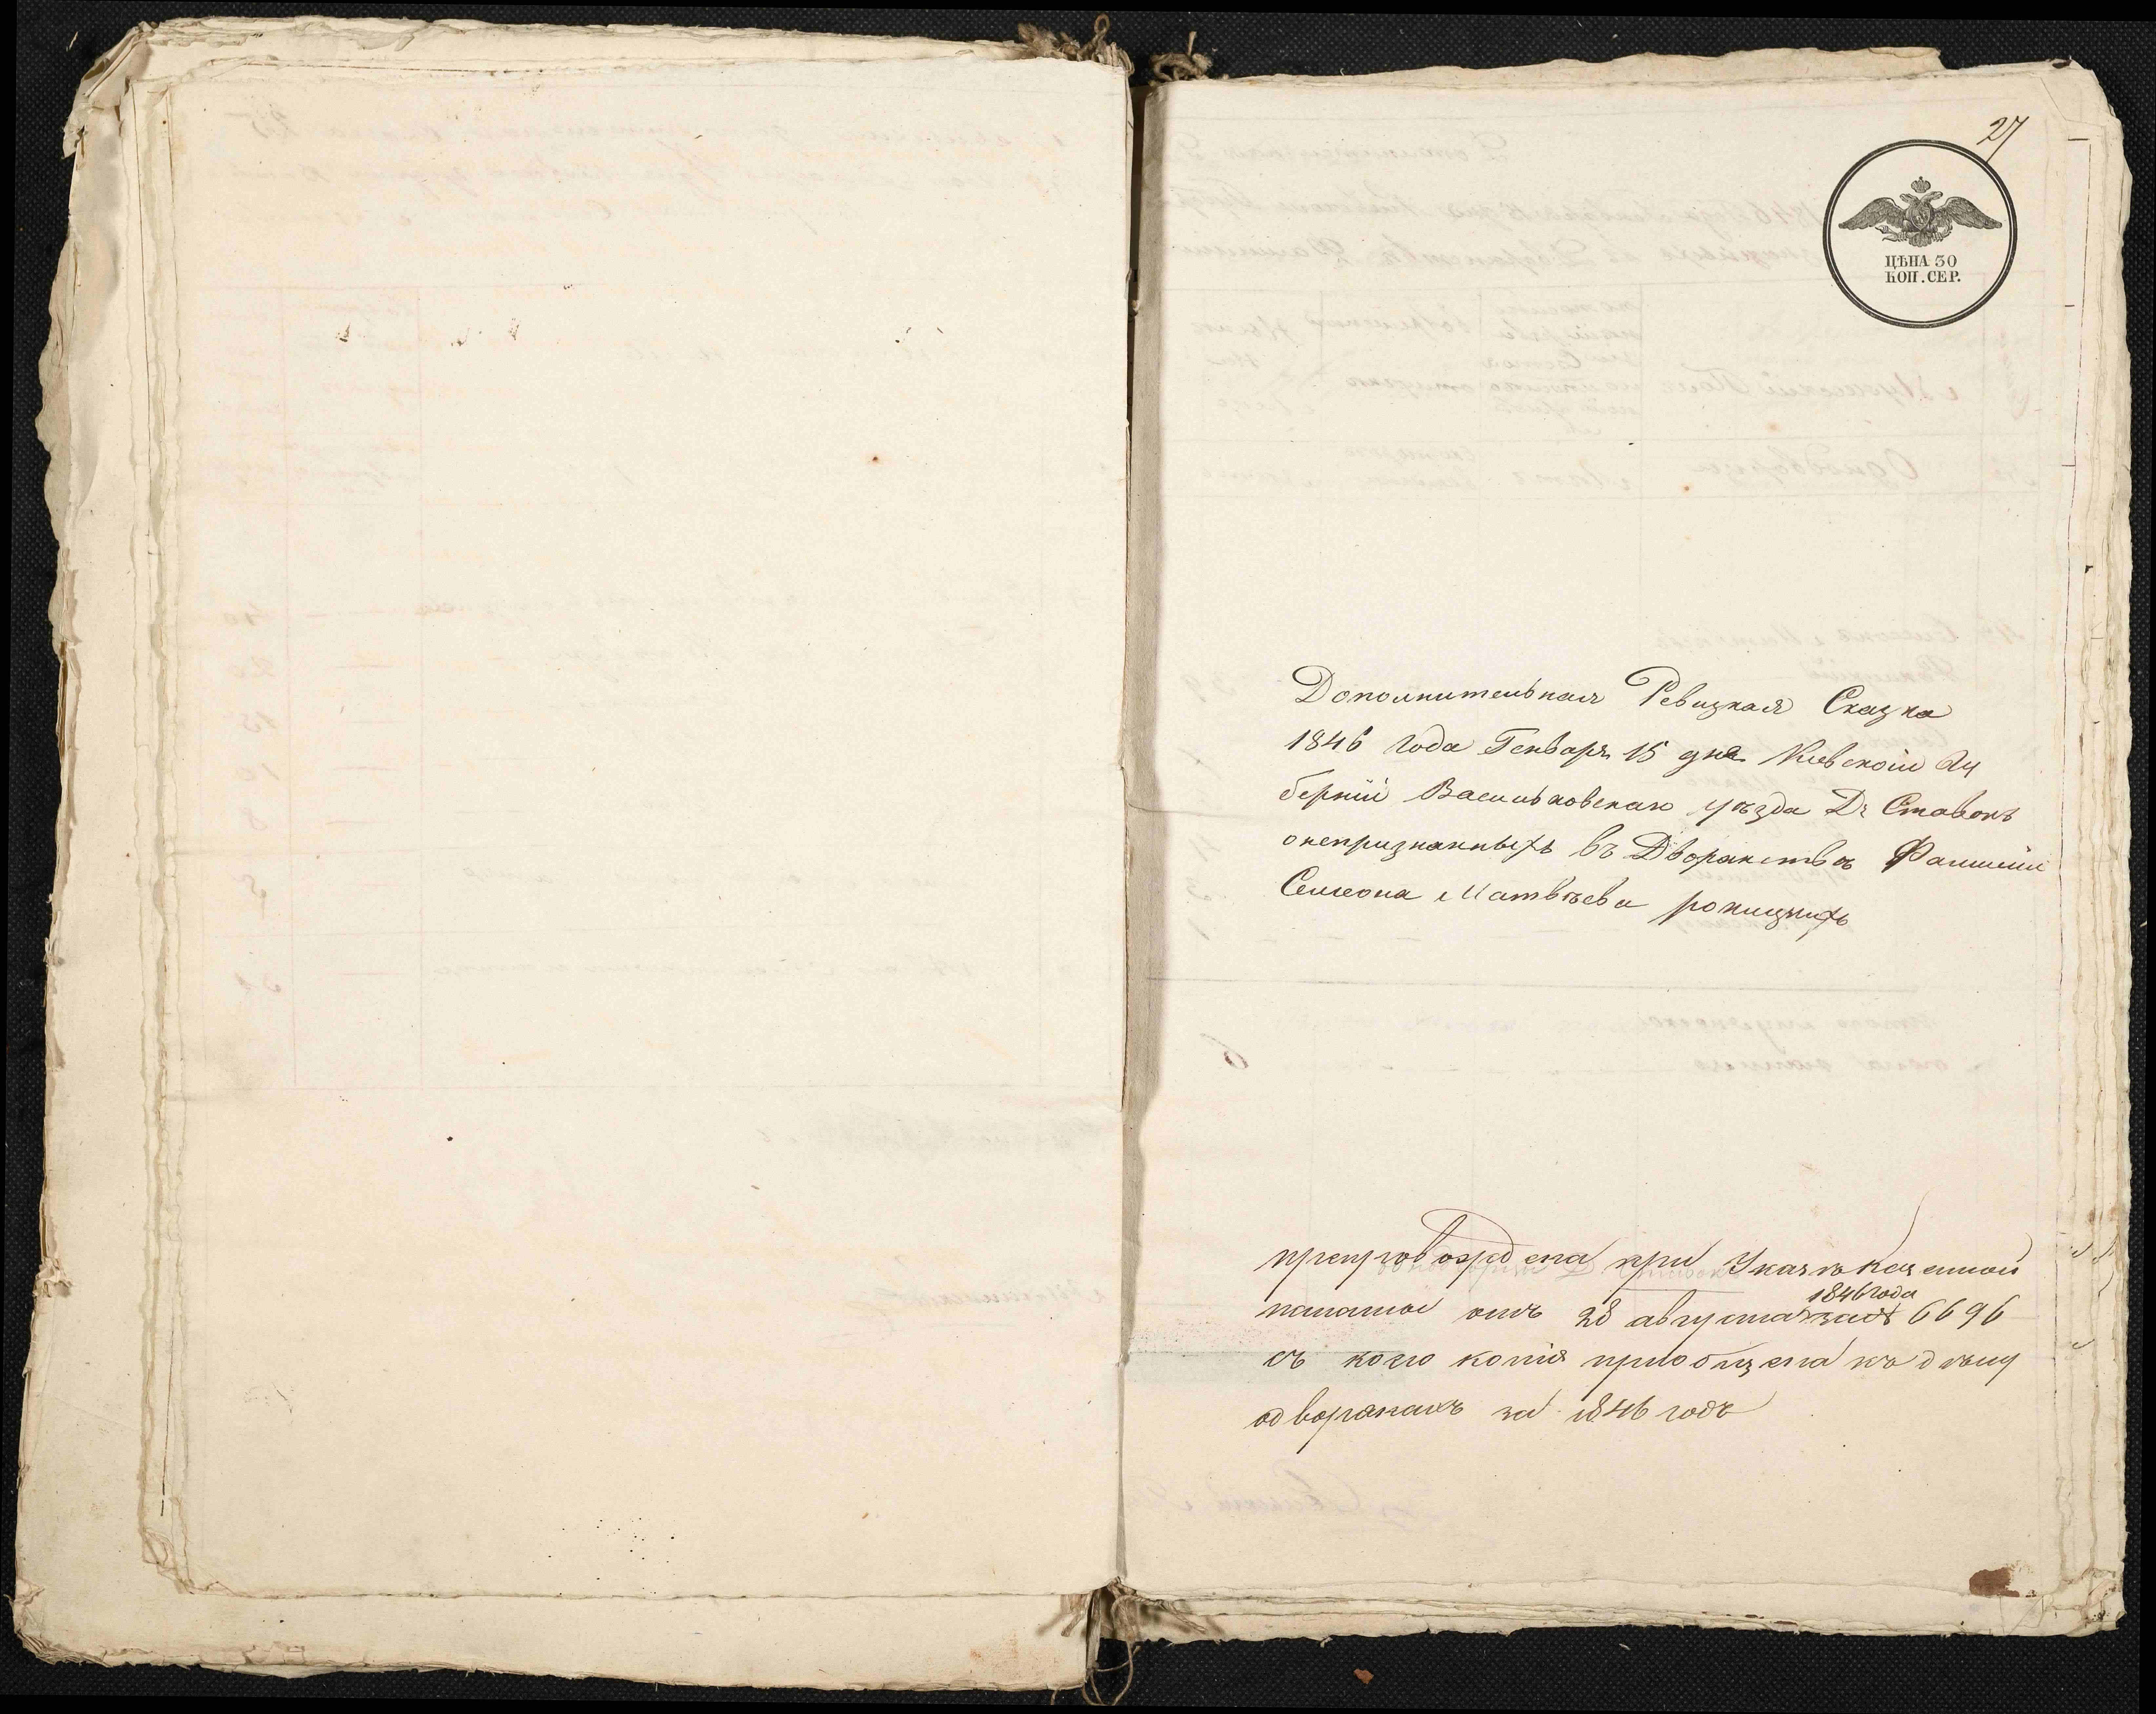 27
ЦѢНА 30
КОП. СЕР.
Дополнительная Ревизкая Сказка
1846 года Генваря 15 дня Киевской Гу
берніи Васильковскаго уѣзда Д: Ставокъ
онепризнанныхъ въ Дворянствѣ Фамиліи
Семеона Матвѣева рокицкихъ
препровождена при Указѣ казенной
1846 года
палаты отъ 28 августа за № 6696
съ коего копія пріобщена къ дѣлу
одворянахъ за 1846 годъ